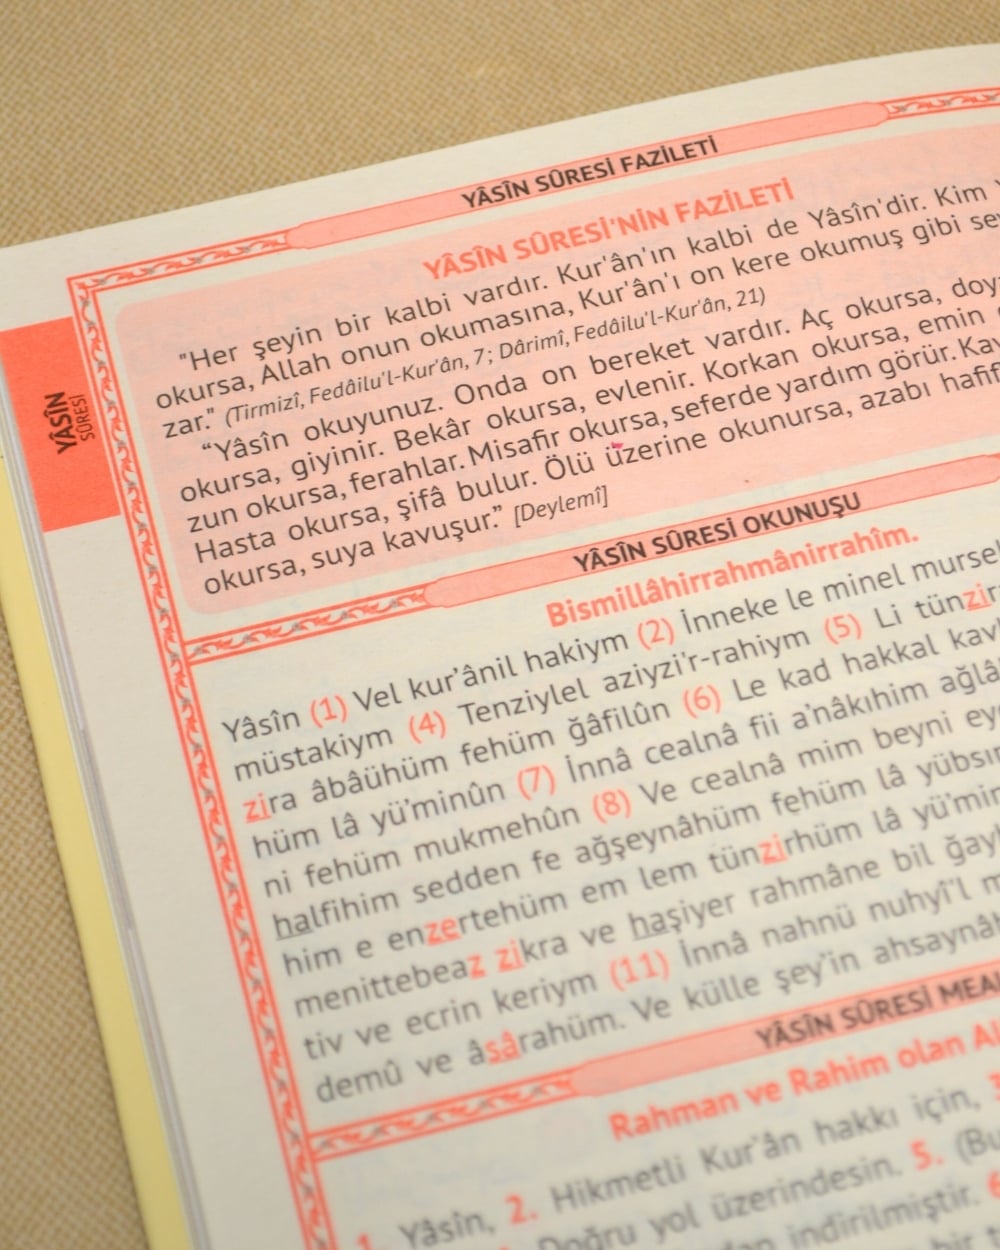 YÂSÎN SÛRESİ FAZİLETİ
YÂSÎN SÛRESİ'NİN FAZİLETİ
"Her şeyin bir kalbi vardır. Kur'ân'ın kalbi de Yâsîn'dir. Kim
okursa, Allah onun okumasına, Kur'ân'ı on kere okumuş gibi se
zar." (Tirmizî, Fedâilu'l-Kur'ân, 7; Dârimî, Fedâilu'l-Kur'ân, 21)
“Yâsîn okuyunuz. Onda on bereket vardır. Aç okursa, doy
okursa, giyinir. Bekâr okursa, evlenir. Korkan okursa, emin
zun okursa, ferahlar. Misafir okursa, seferde yardım görür. Kay
Hasta okursa, şifâ bulur. Ölü üzerine okunursa, azabı hafif
okursa, suya kavuşur.” [Deylemî]
YÂSÎN
SÛRESİ
YÂSÎN SÛRESİ OKUNUŞU
Bismillâhirrahmânirrahîm.
Yâsîn (1) Vel kur’ânil hakiym (2) İnneke le minel mursel
müstakiym (4) Tenziylel aziyzi’r-rahiym (5) Li tünzir
zira âbâühüm fehüm ğâfilûn (6) Le kad hakkal kavl
hüm lâ yü’minûn (7) İnnâ cealnâ fii a’nâkıhim ağlâ
ni fehüm mukmehûn (8) Ve cealnâ mim beyni ey
halfihim sedden fe ağşeynâhüm fehüm lâ yübsı
him e enzertehüm em lem tünzirhüm lâ yü’mi
menittebeaz zikra ve haşiyer rahmâne bil ğay
tiv ve ecrin keriym (11) İnnâ nahnü nuhyi’l m
demû ve âsârahüm. Ve külle şey’in ahsaynâ
YÂSÎN SÛRESİ MEA
Rahman ve Rahim olan Al
1. Yâsîn, 2. Hikmetli Kur’ân hakkı için,
Doğru yol üzerindesin. 5. (Bu
indirilmiştir.
bir